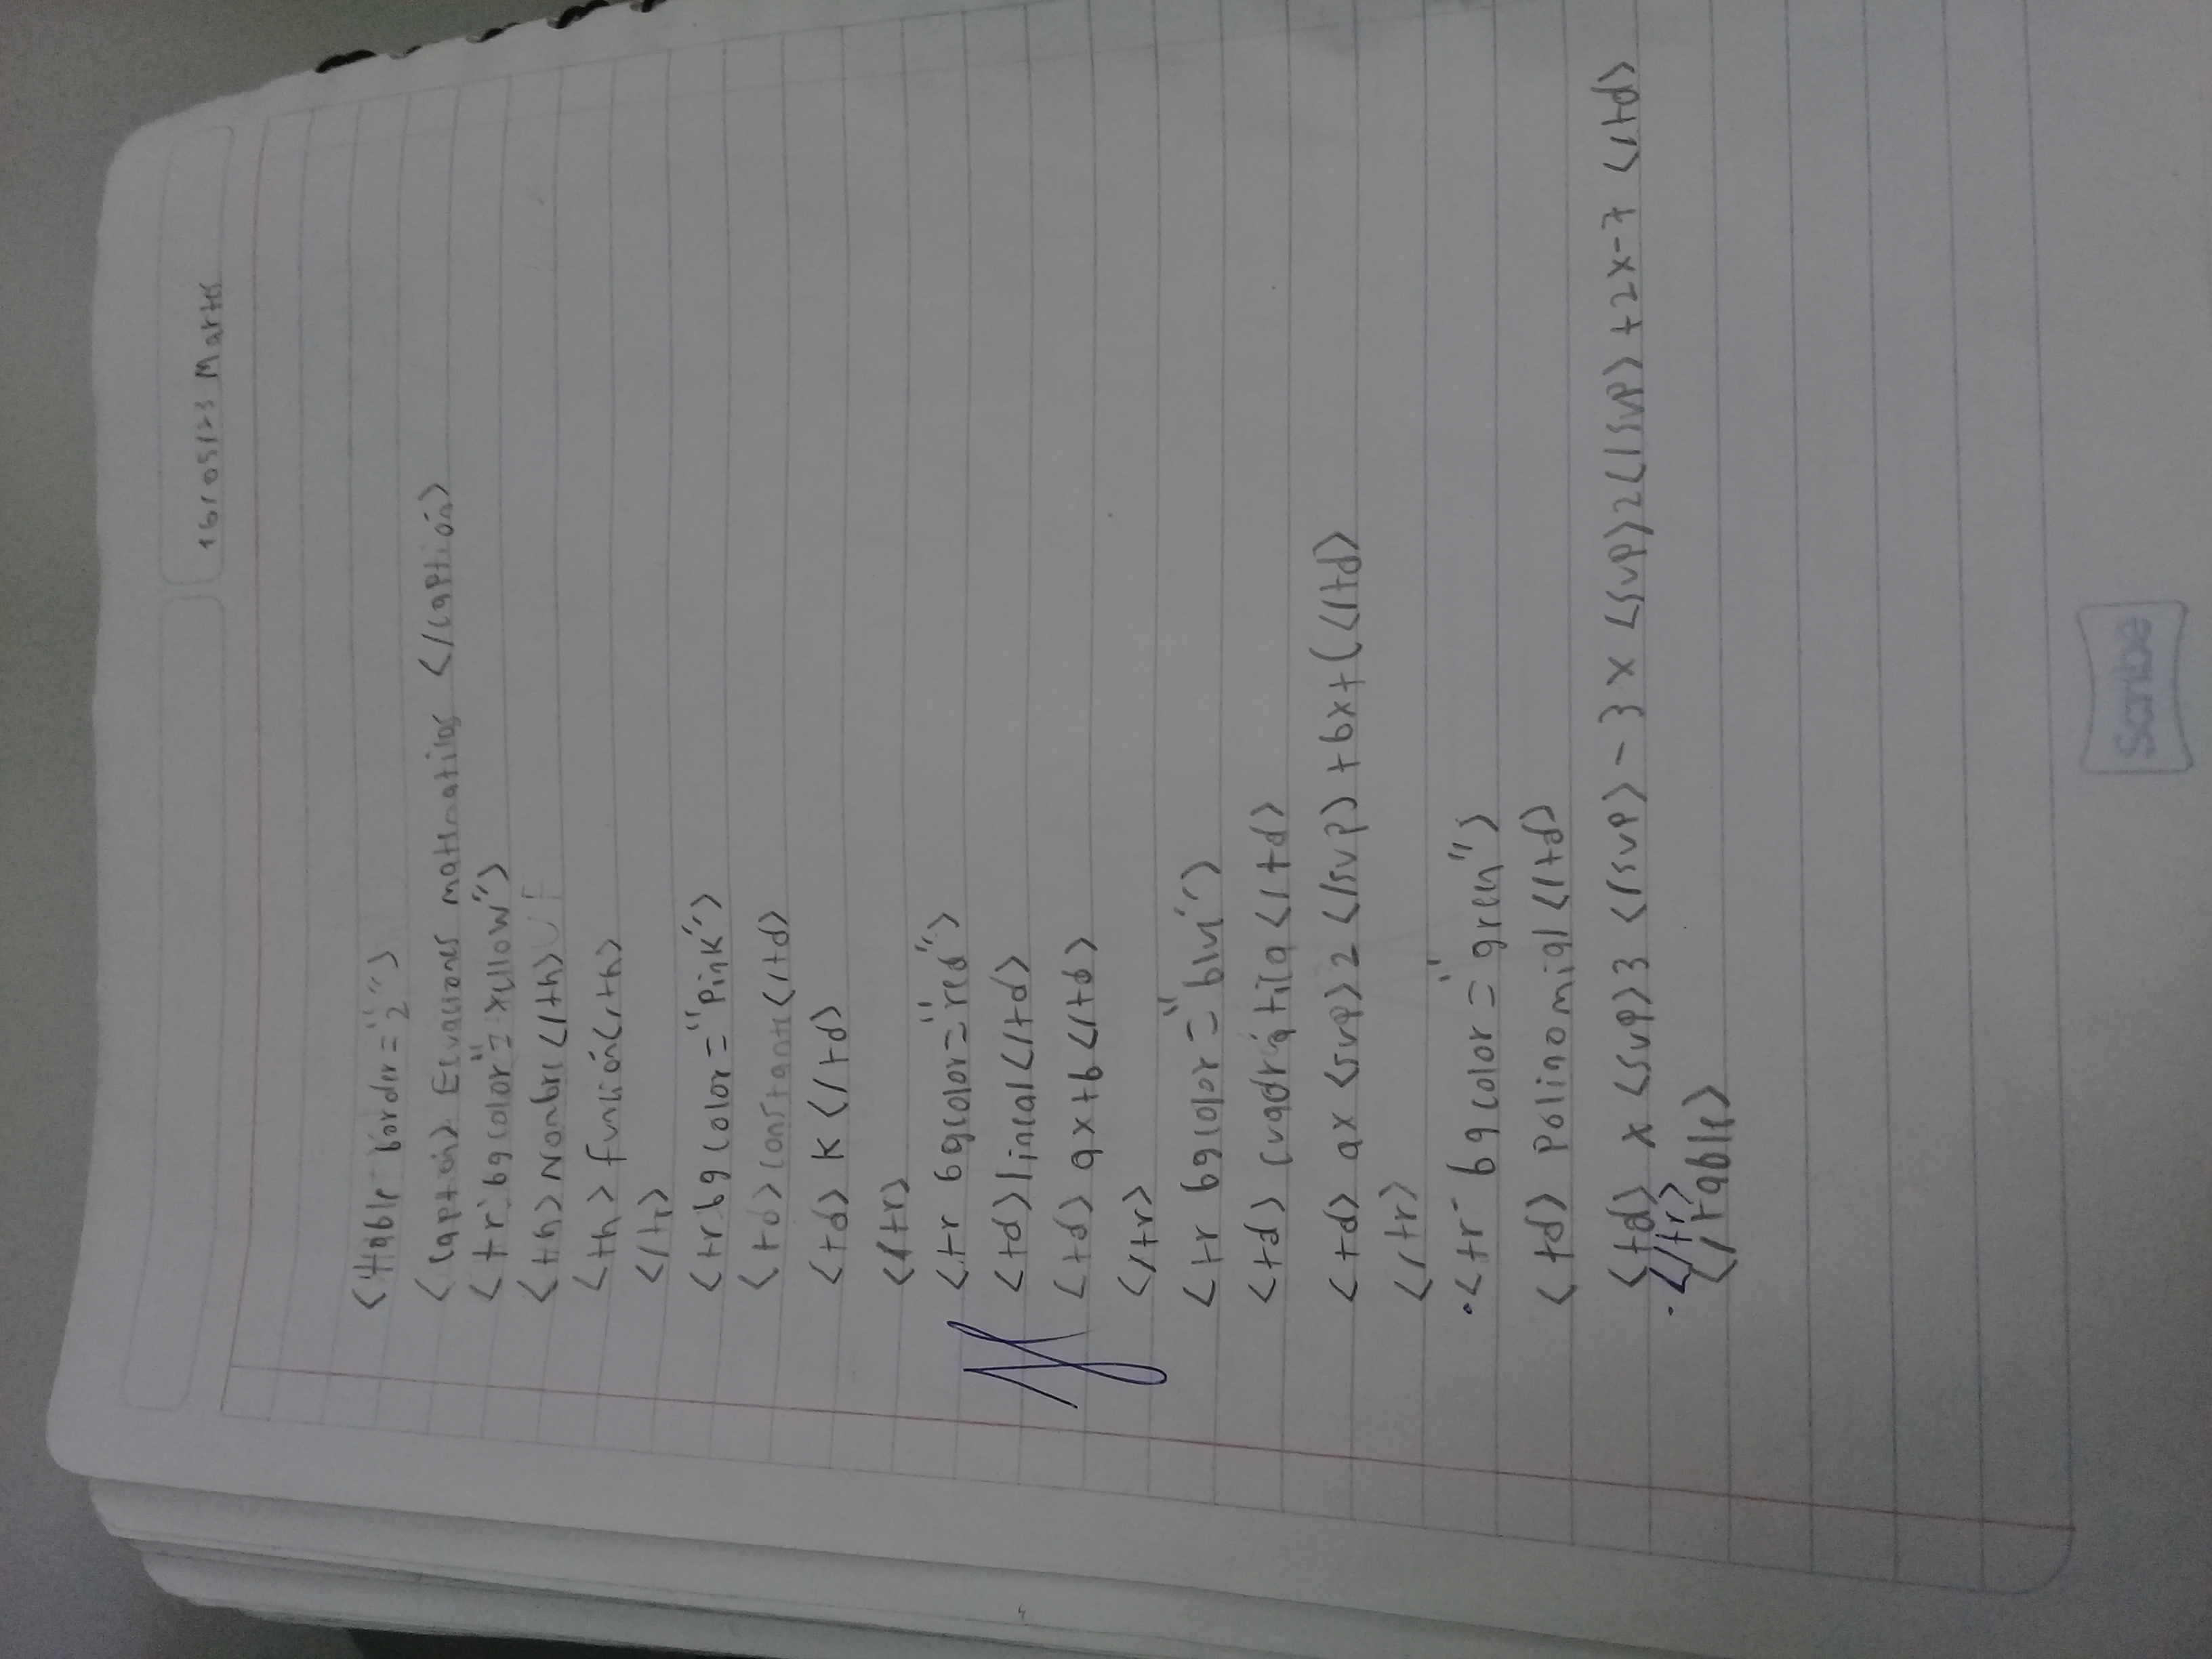 16/05/23 Martes
<table border="2">
<caption> Ecuaciones matematicas </caption>
<tr bgcolor"= yellow">
<th> Nombre </th>
<th> función</th>
</tr>
<tr bgcolor="Pink">
<td> constante </td>
<td> K </td>
</tr>
<tr bgcolor="red">
<td> lineal </td>
<td> ax+b </td>
</tr>
<tr bgcolor="blue">
<td> cuadrática </td>
<td> ax <sup> 2 </sup> +bx+c </td>
</tr>
<tr bgcolor="green">
<td> Polinomial </td>
<td> x <sup> 3 </sup> - 3x <sup> 2 </sup> +2x-7 </td>
</tr>
</table>
Scribe